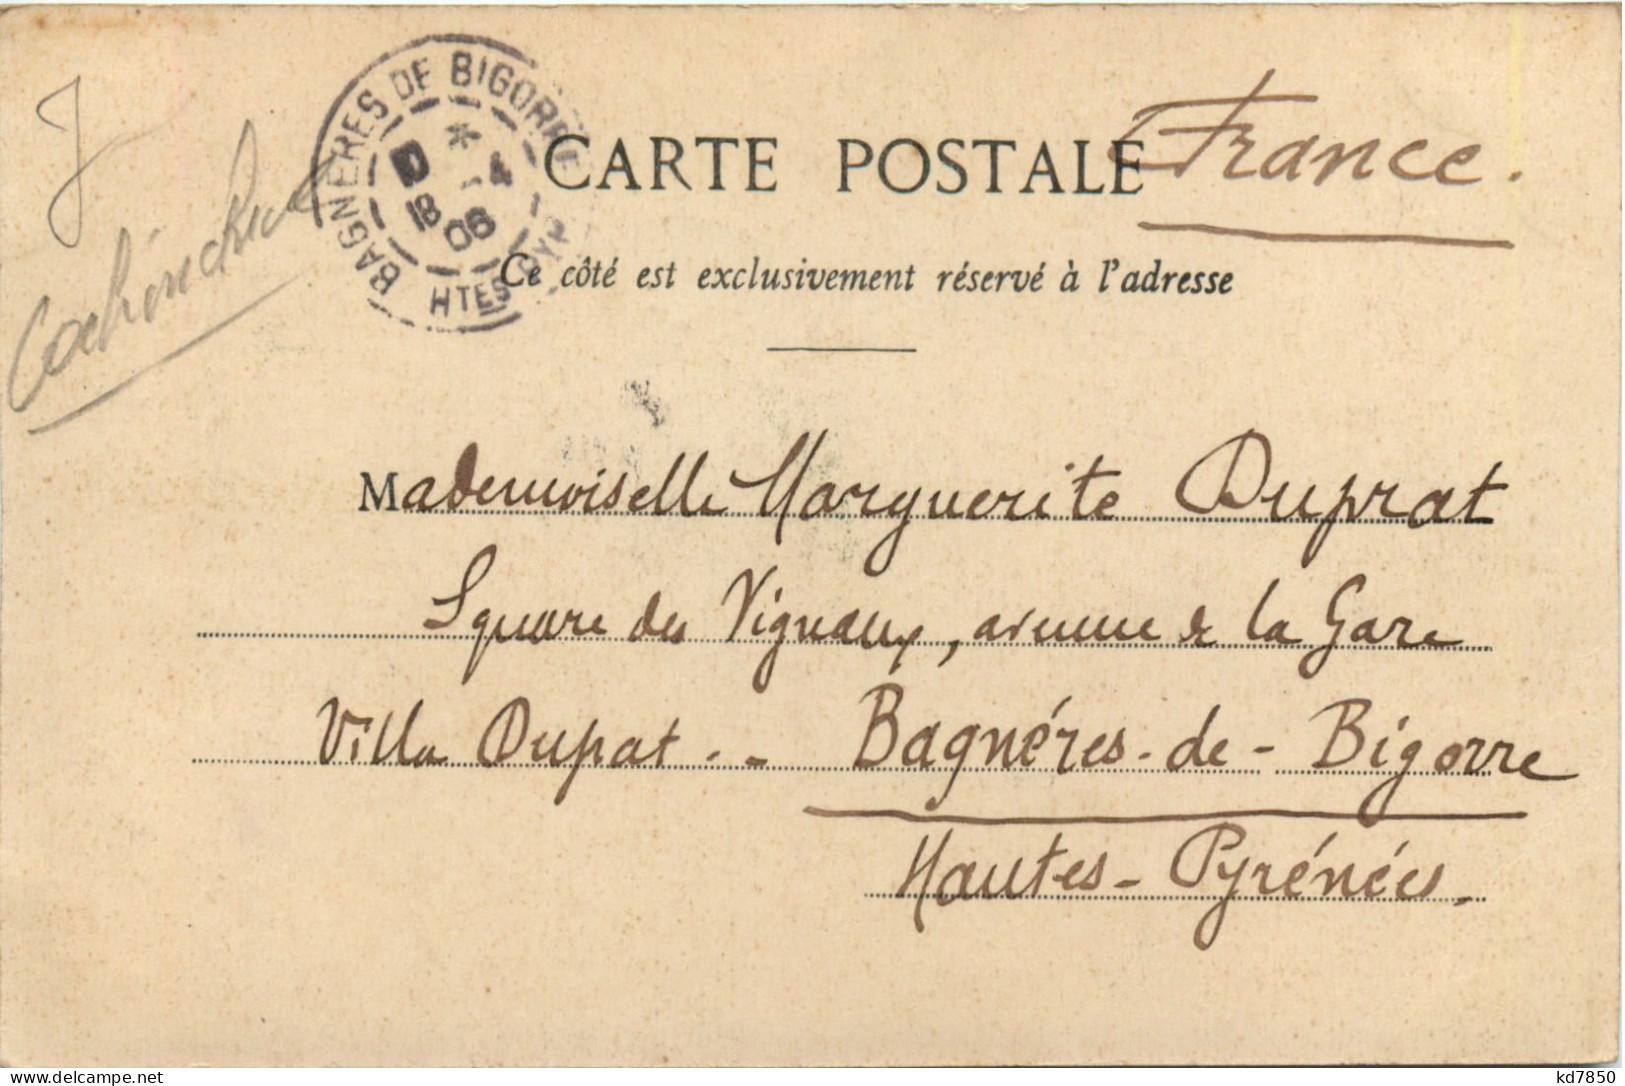 J
Cochinchine
BAGNERES DE BIGORRE
* -4
18
06
HTES PYR
CARTE POSTALE
France.
Ce côté est exclusivement réservé à l'adresse
Mademoiselle Marguerite Duprat
Square des Vignaux, avenue de la Gare
Villa Dupat. - Bagnéres-de-Bigorre
Hautes-Pyrénées.
www.delcampe.net
kd7850